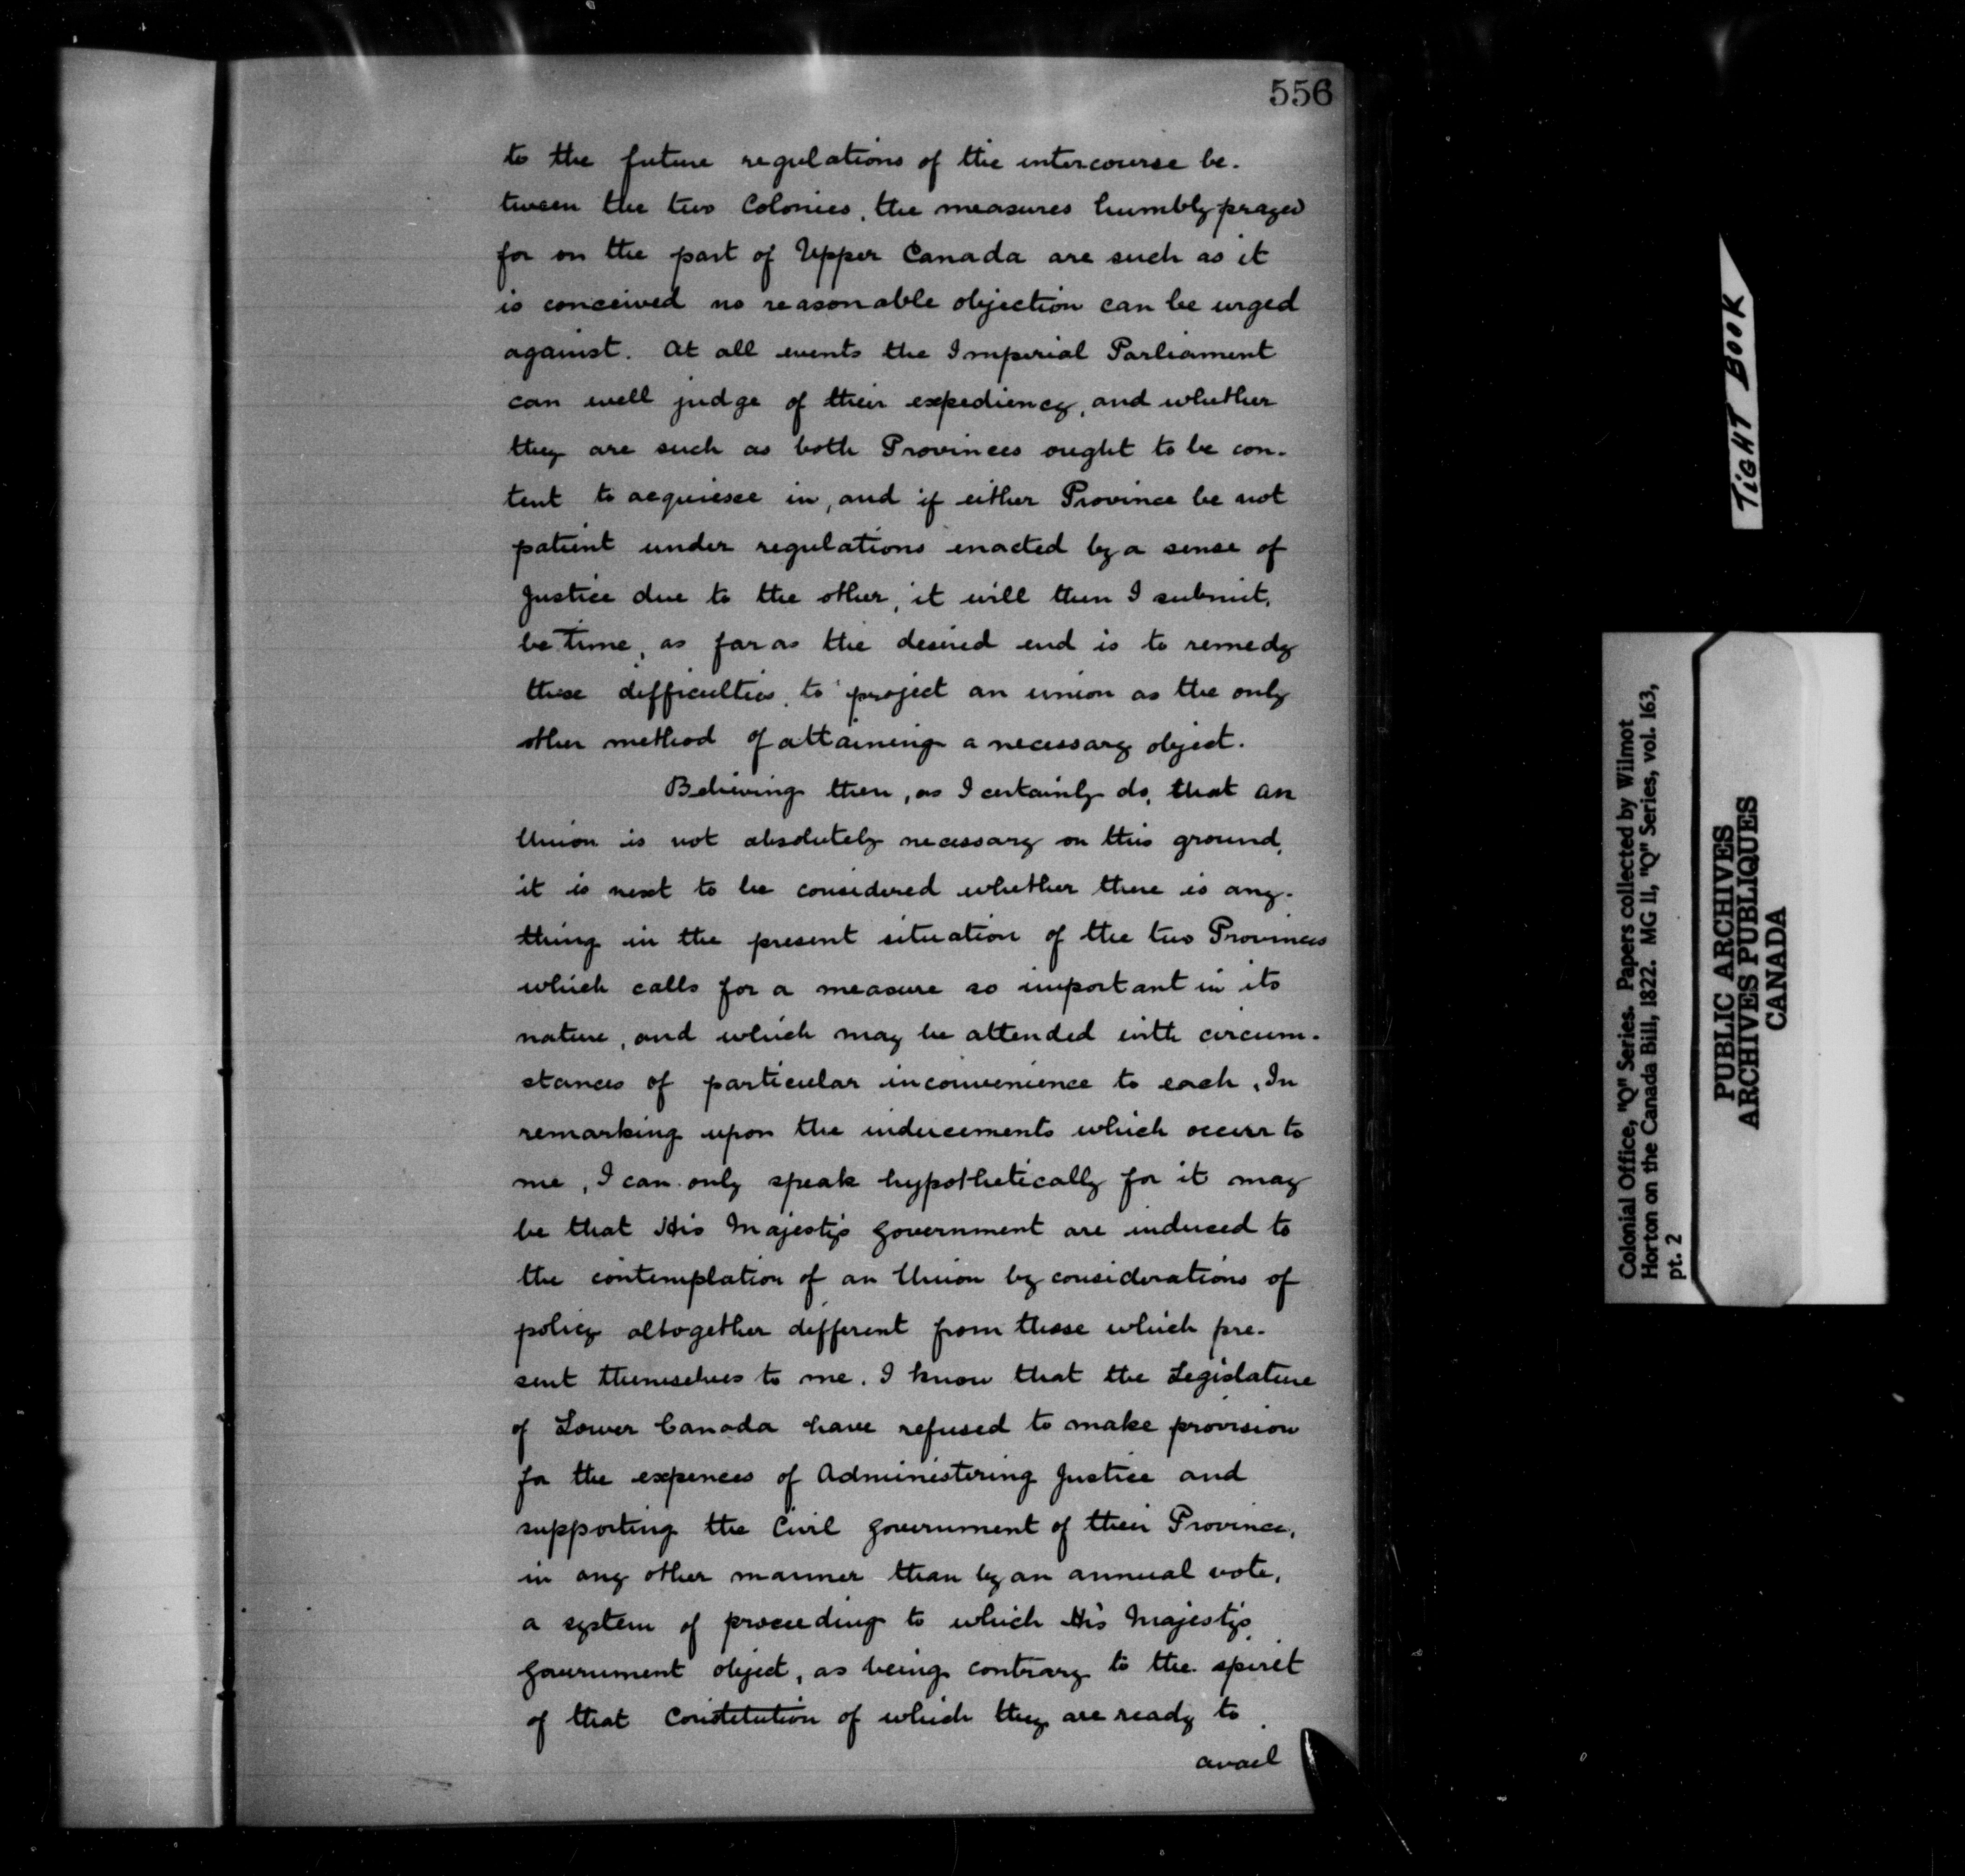 556
to the future regulations of the intercourse be-
tween the two Colonies, the measures humbly prayed
for on the part of Upper Canada are such as it
is conceived no reasonable objection can be urged
against. At all events the Imperial Parliament
can well judge of their expediency, and whether
they are such as both Provinces ought to be con-
tent to acquiesce in, and if either Province be not
patient under regulations enacted by a sense of
Justice due to the other, it will then I submit,
be time, as far as the desired end is to remedy
these difficulties, to project an union as the only
other method of attaining a necessary object.
Believing then, as I certainly do, that an
Union is not absolutely necessary on this ground,
it is next to be considered whether there is any-
thing in the present situation of the two Provinces
which calls for a measure so important in its
nature, and which may be attended with circum-
stances of particular inconvenience to each. In
remarking upon the inducements which occur to
me, I can only speak hypothetically for it may
be that His Majesty's Government are induced to
the contemplation of an Union by considerations of
policy altogether different from those which pre-
sent themselves to me. I know that the Legislature
of Lower Canada have refused to make provision
for the expences of Administering Justice and
supporting the Civil Government of their Province,
in any other manner than by an annual vote,
a system of proceeding to which His Majesty's
Government object, as being contrary to the spirit
of that Constitution of which they are ready to
avail
TIGHT BOOK
Colonial Office, "Q" Series. Papers collected by Wilmot
Horton on the Canada Bill, 1822. MG 11, "Q" Series, vol. 163,
pt. 2
PUBLIC ARCHIVES
ARCHIVES PUBLIQUES
CANADA